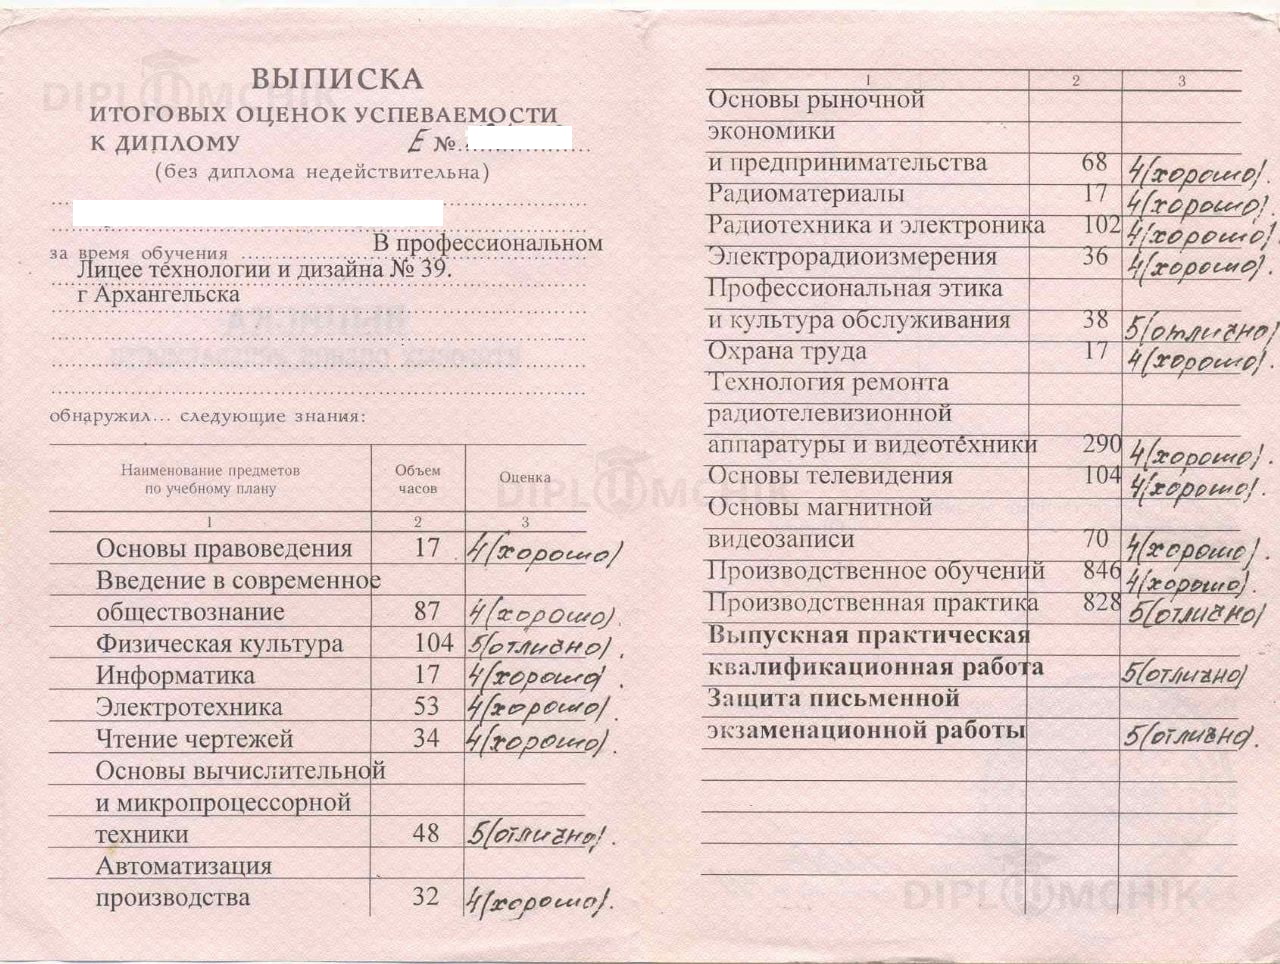 ВЫПИСКА
ИТОГОВЫХ ОЦЕНОК УСПЕВАЕМОСТИ
К ДИПЛОМУ Е №
(без диплома недействительна)
за время обучения В профессиональном
Лицее технологии и дизайна № 39.
г Архангельска
обнаружил... следующие знания:
Наименование предметов по учебному плану Объем часов Оценка
1 2 3
Основы правоведения 17 4(хорошо)
Введение в современное
обществознание 87 4(хорошо).
Физическая культура 104 5(отлично).
Информатика 17 4(хорошо).
Электротехника 53 4(хорошо).
Чтение чертежей 34 4(хорошо).
Основы вычислительной
и микропроцессорной
техники 48 5(отлично).
Автоматизация
производства 32 4(хорошо).
1 2 3
Основы рыночной
экономики
и предпринимательства 68 4(хорошо).
Радиоматериалы 17 4(хорошо).
Радиотехника и электроника 102 4(хорошо).
Электрорадиоизмерения 36 4(хорошо).
Профессиональная этика
и культура обслуживания 38 5(отлично)
Охрана труда 17 4(хорошо).
Технология ремонта
радиотелевизионной
аппаратуры и видеотехники 290 4(хорошо).
Основы телевидения 104 4(хорошо).
Основы магнитной
видеозаписи 70 4(хорошо).
Производственное обучений 846 4(хорошо).
Производственная практика 828 5(отлично)
Выпускная практическая
квалификационная работа 5(отлично)
Защита письменной
экзаменационной работы 5(отлично).
DIPLOMCHIK
DIPLOMCHIK
DIPLOMCHIK